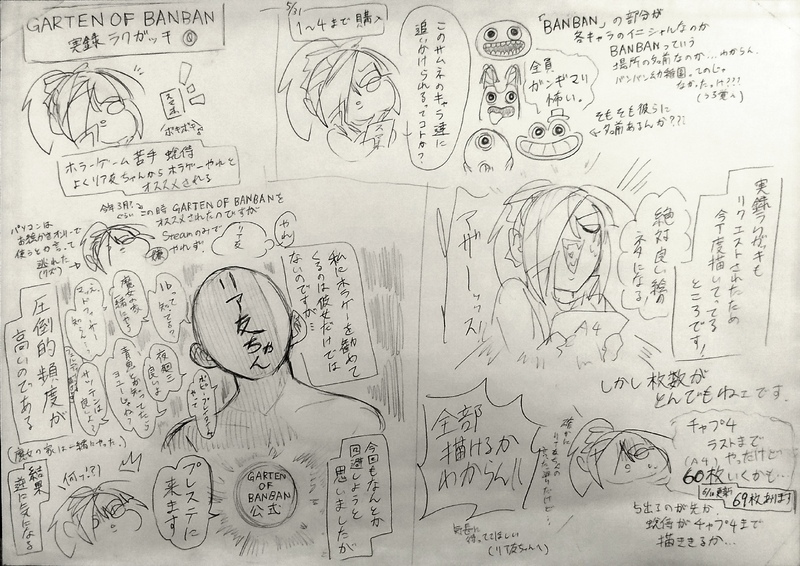 GARTEN OF BANBAN
実録 ラクガッキ ①
スマホ
ポキポキ
ホラーゲーム苦手 蛇侍
よくリア友ちゃんからホラゲーやれと
オススメされる
5/31
1〜4まで購入
このサムネのキャラ達に
追いかけられるってコトか?
全員
ガンギマリ
怖い。
「BANBAN」の部分が
各キャラのイニシャルなのか
BANBANっていう
場所の名前なのか…わからん。
バンバン幼稚園。てのじゃ
なかったっけ???
(うろ覚え)
そもそも彼らに
名前あるんか???
今年3月
この時 GARTEN OF BANBANを
オススメされたのですが
Steamのみで
やれず。
パソコンは
お絵かきオンリーで
使うとの言って
逃れた
(クズ)
やれ
リア友
リア友ちゃん
私にホラゲを勧めて
くるのは彼女だけでは
ないのですが…
Ib、知ってる?
魔女の家
一緒にやろ
マッドファザー
知らん?
夜廻三
良いよ
青鬼とか知ってたら
ヨユーじゃね?
ポピープレイタイム
やって
圧倒的頻度が
高いのである
(魔女の家は一緒にやった。)
結果
逆に気になる
何っ!?
プレステに
来ます
GARTEN
OF
BANBAN
公式
今回もなんとか
回避しようと
思いましたが
実録ラクガッキも
リクエストされたため
今丁度描いてってる
ところです!
絶対良い絵の
ネタになる
アザーッス!
A4
しかし枚数が
とんでもねェです。
全部
描けるか
わからん!!
チャプ4
ラストまで
(A4)やったけど
60枚いくかも…
69枚あります
5出るのが先か
蛇侍がチャプ4まで
描ききるか…
気長に
待っててほしい
(リア友ちゃんへ)